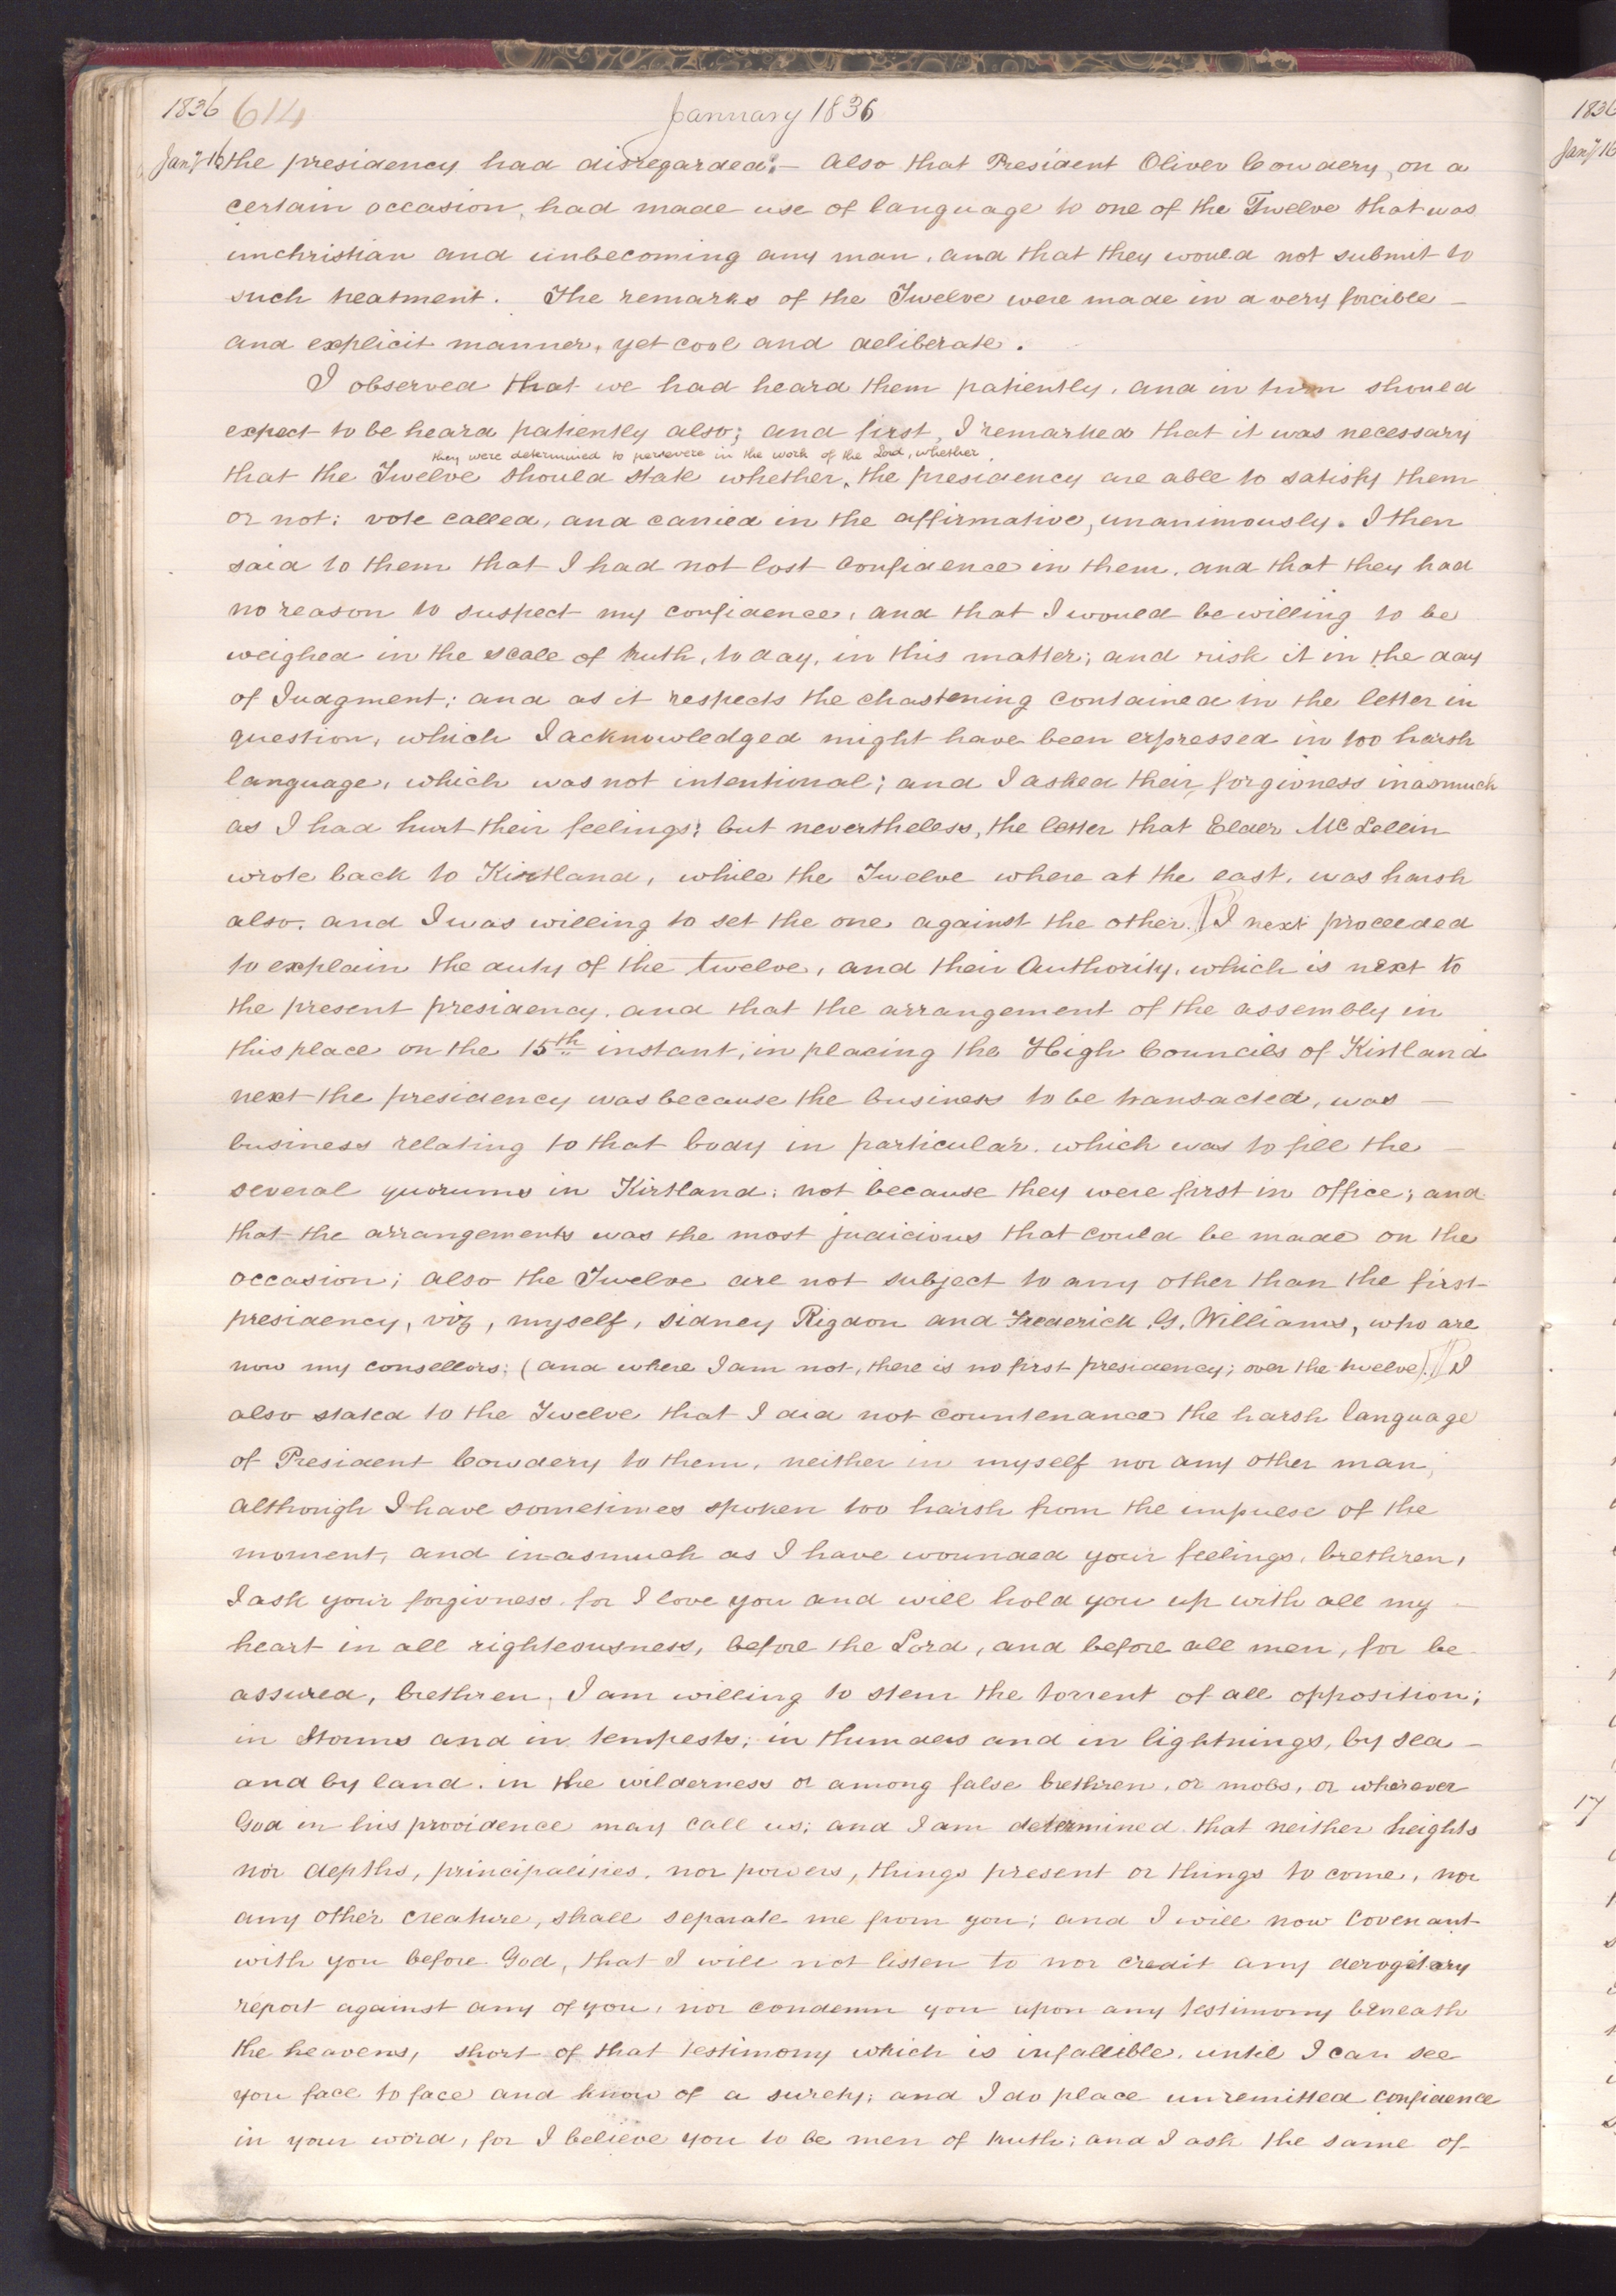 1836 614 January 1836
Jany 16 the presidency had disregarded:— Also that President Oliver Cowdery, on a
certain occasion, had made use of language to one of the Twelve that was
unchristian and unbecoming any man, and that they would not submit to
such treatment. The remarks of the Twelve were made in a very forcible
and explicit manner, yet cool and deliberate.
I observed that we had heard them patiently, and in turn should
expect to be heard patiently also; and first, I remarked that it was necessary
they were determined to persevere in the work of the Lord, whether
that the Twelve should state whether, the presidency are able to satisfy them
or not; vote called, and carried in the affirmative, unanimously. I then
said to them that I had not lost confidence in them, and that they had
no reason to suspect my confidence, and that I would be willing to be
weighed in the scale of truth, to day, in this matter; and risk it in the day
of Judgment; and as it respects the chastening contained in the letter in
question, which I acknowledged might have been expressed in too harsh
language, which was not intentional; and I asked their forgivness inasmuch
as I had hurt their feelings; but nevertheless, the letter that Elder McLellin
wrote back to Kirtland, while the Twelve where at the east, was harsh
also, and I was willing to set the one against the other. I next proceeded
to explain the duty of the twelve, and their Authority, which is next to
the present presidency, and that the arrangement of the assembly in
this place on the 15th instant, in placing the High Councils of Kirtland
next the presidency was because the business to be transacted, was
business relating to that body in particular, which was to fill the
several quorums in Kirtland; not because they were first in office; and
that the arrangements was the most judicious that could be made on the
occasion; also the Twelve are not subject to any other than the first
presidency, viz, myself, Sidney Rigdon and Frederick G. Williams, who are
now my consellors; (and where I am not, there is no first presidency; over the twelve). I
also stated to the Twelve that I did not countenance the harsh language
of President Cowdery to them, neither in myself nor any other man,
although I have sometimes spoken too harsh from the impulse of the
moment, and inasmuch as I have wounded your feelings, brethren,
I ask your forgivness, for I love you and will hold you up with all my
heart in all righteousness, before the Lord, and before all men, for be
assured, brethren, I am willing to stem the torrent of all opposition;
in storms and in tempests; in thunders and in lightnings, by sea
and by land, in the wilderness or among false brethren, or mobs, or wherever
God in his providence may call us; and I am determined that neither heights
nor depths, principalities, nor powers, things present or things to come, nor
any other creature, shall separate me from you; and I will now covenant
with you before God, that I will not listen to nor credit any derogatary
report against any of you, nor condemn you upon any testimony beneath
the heavens, short of that testimony which is infallible, until I can see
you face to face and know of a surety; and I do place unremitted confidence
in your word, for I believe you to be men of truth; and I ask the same of
1836
Jany 16
17